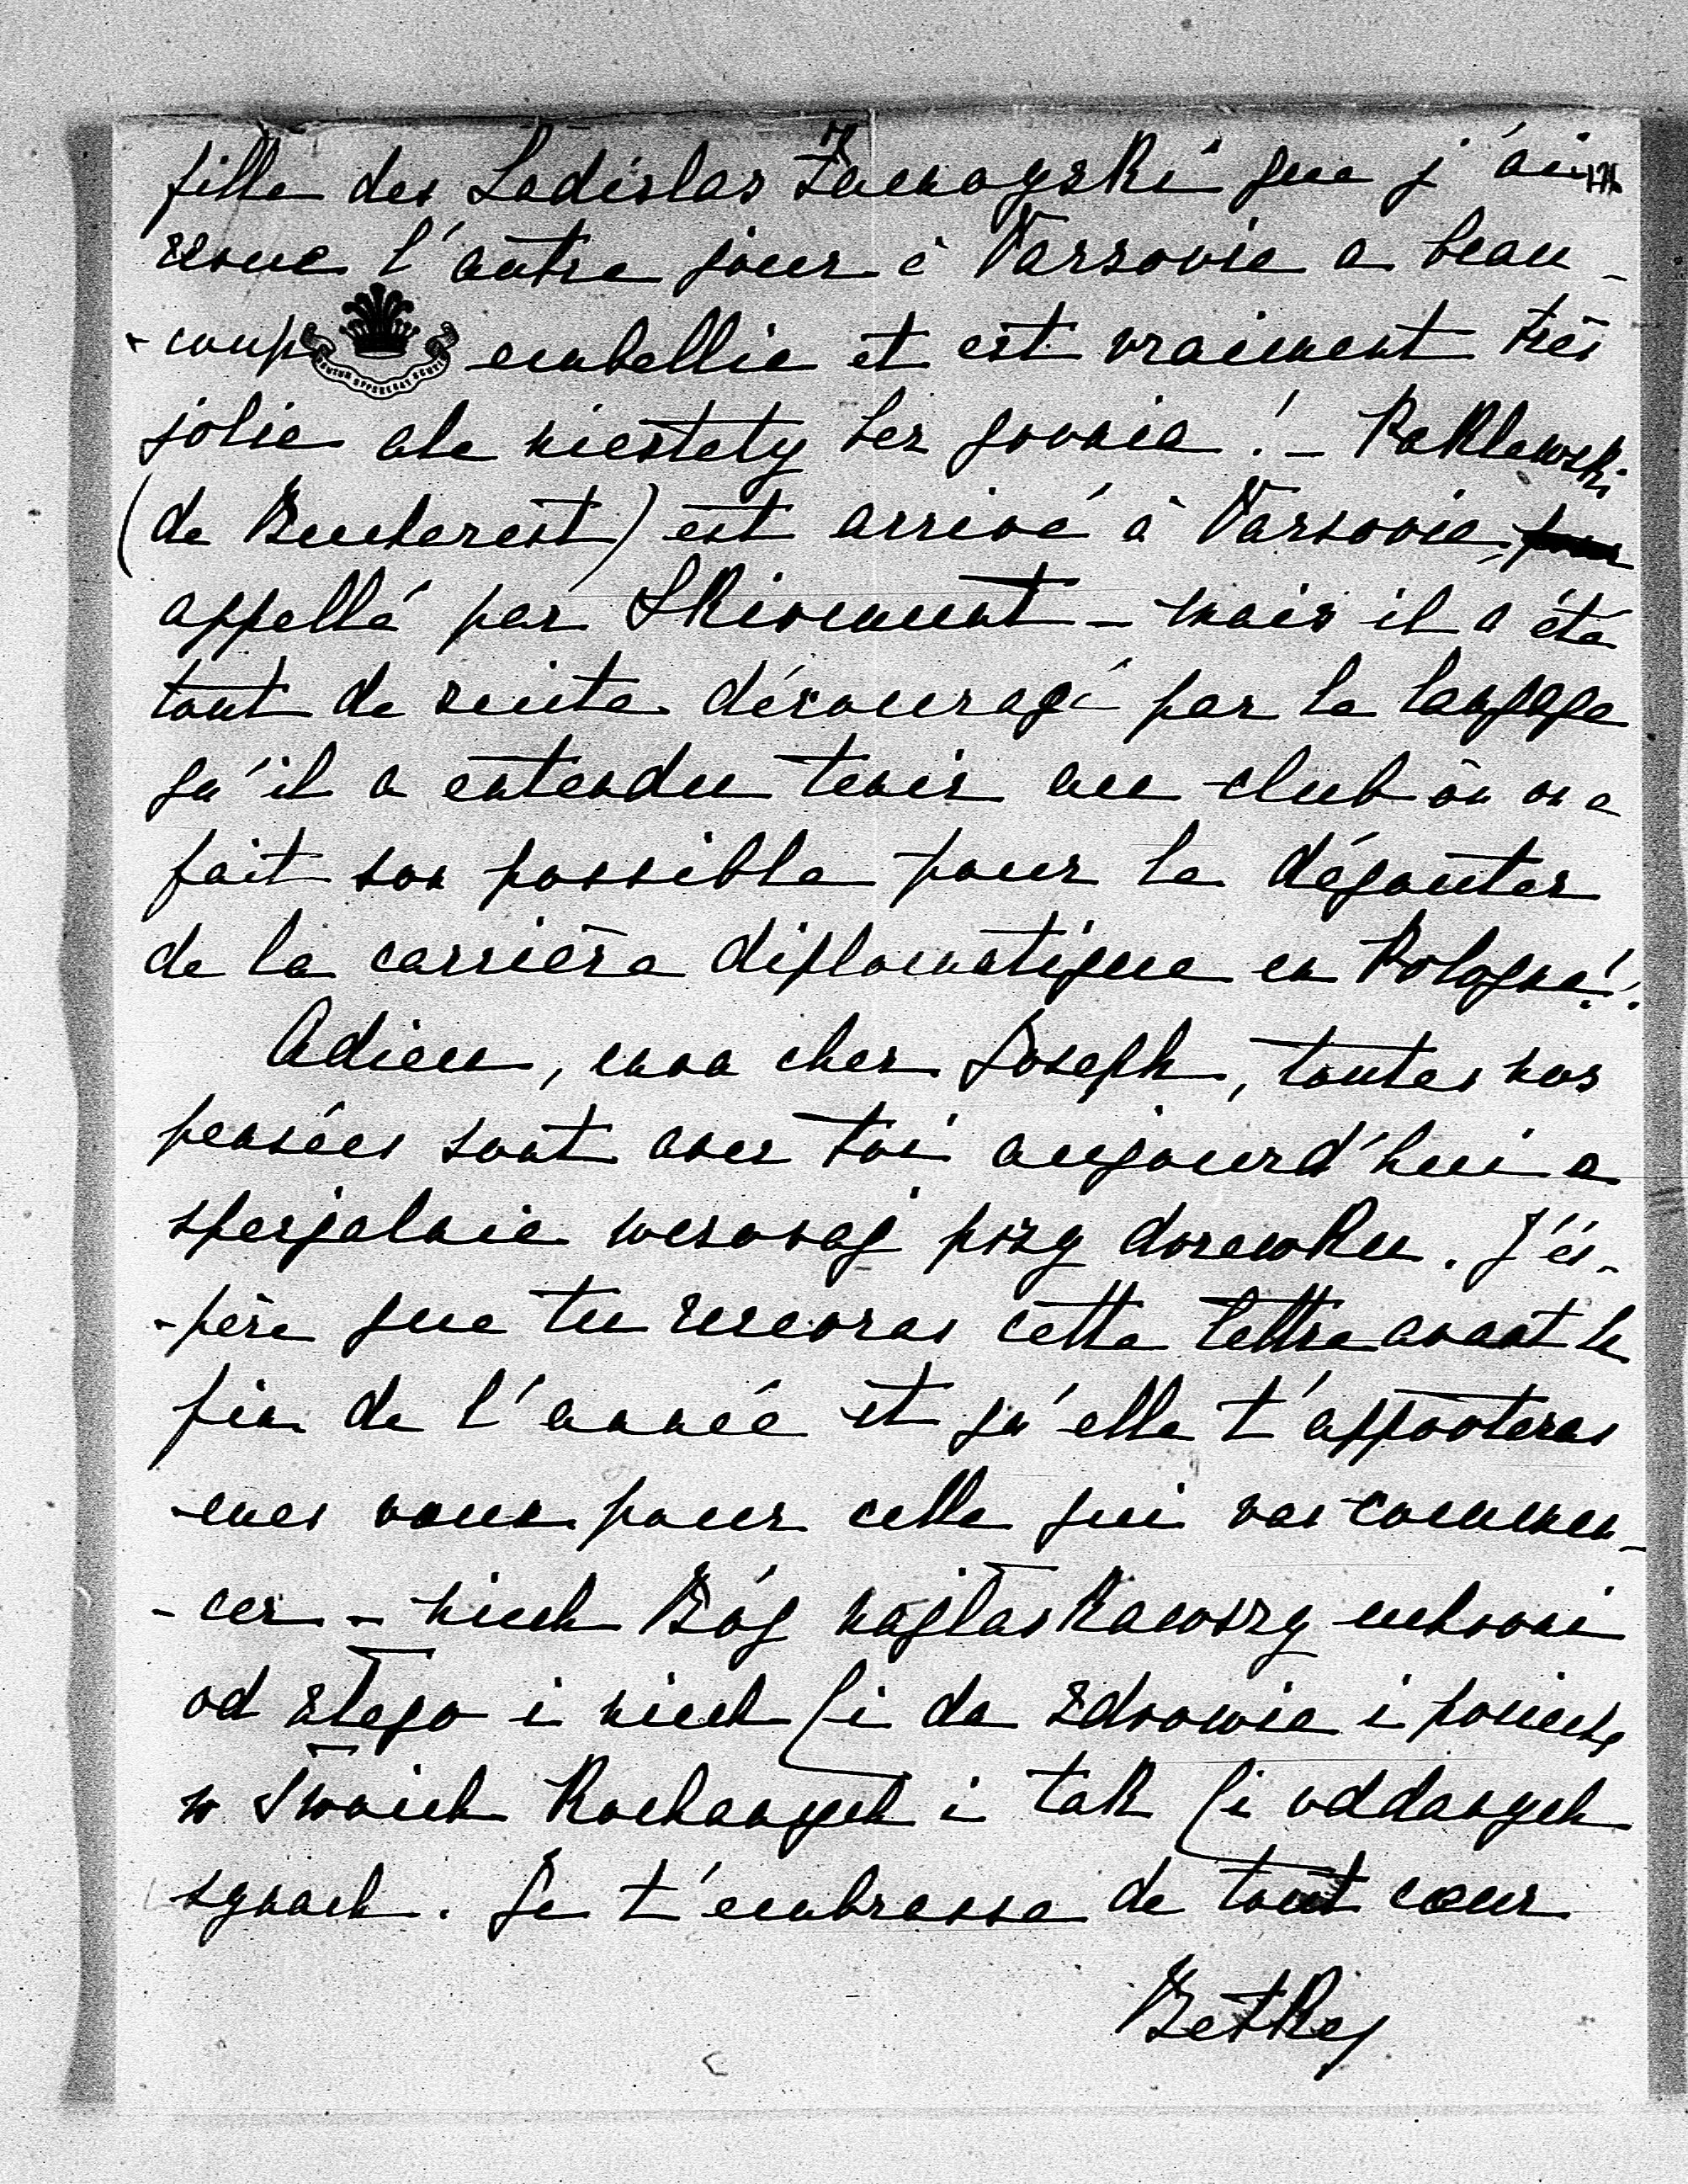 fille des Ladislas Zamoyski que j'ai
revue l'autre jour à Varsovie a beau-
-coup embellie et est vraiment très
jolie ale niestety bez gownia! - Poklewski
(de Bucharest) est arrivé à Varsovie,
appellé par Skirmunt - mais il a été
tout de suite découragé par le langage
qu'il a entendu tenir au club où on a
fait son possible pour le dégouter
de la carrière diplomatique en Pologne!.
Adieu, mon cher Joseph, toutes nos
pensées sont avec toi aujourd'hui a
specjalnie wczoraj przy drzewku. J'és-
-père que tu recevras cette lettre avant la
fin de l'année et qu'elle t'apporteras
mes vœux pour celle qui vas commen-
-cer - niech Bóg najłaskawszy uchroni
od złego i niech Ci da zdrowie i pociechę
w Twoich Kochanych i tak Ci oddanych
synach. Je t'embrasse de tout cœur
Betka